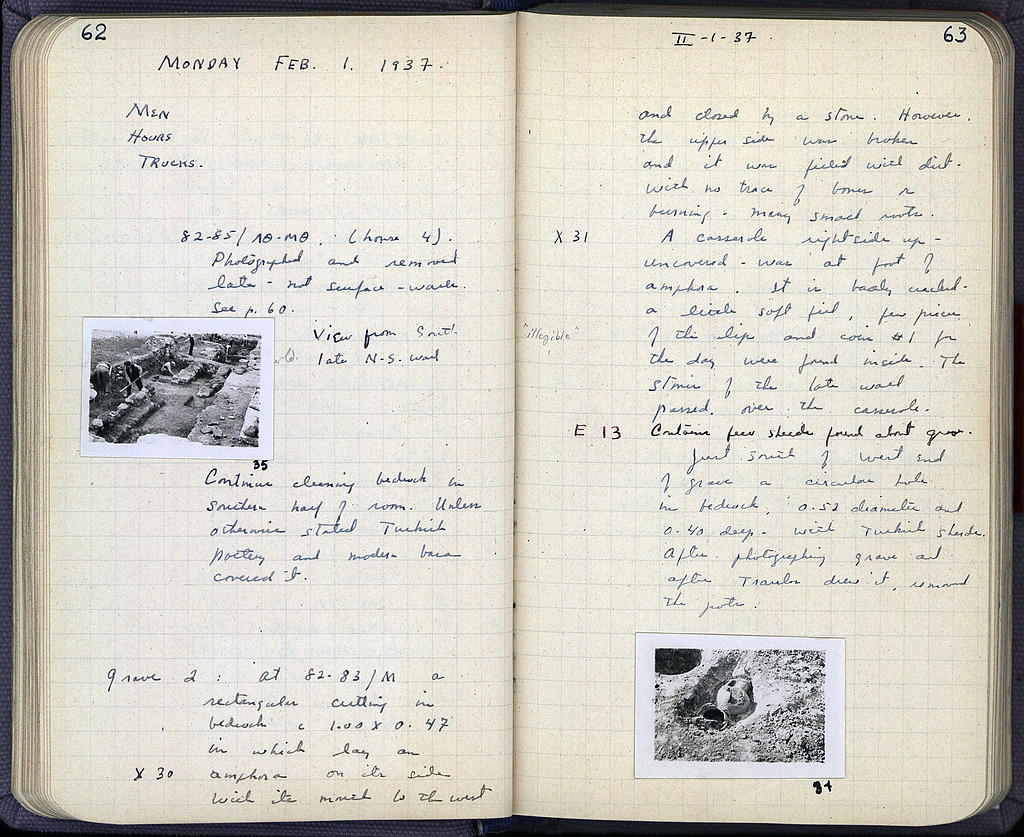 62
MONDAY FEB. 1. 1937.
MEN
HOURS
TRUCKS.
82-85/ΛΘ-ΜΘ. (house 4).
Photographed and removed
late - not surface - wall.
See p. 60.
View from South.
old. late N-S. wall
35
Continue cleaning bedrock in
Southern half of room. Unless
otherwise stated Turkish
pottery and modern
covered it.
grave 2 : at 82-83/M a
rectangular cutting in
bedrock c 1.00 X 0.47
in which lay an
X 30 amphora on its side
with its mouth to the west
63
II -1-37.
and closed by a stone. However,
the upper side was broken
and it was filled with dirt.
with no trace of bones or
burning - many small roots.
X 31 A casserole rightside up -
uncovered - was at foot of
amphora. It is badly cracked.
a little soft fill, few pieces
"illegible" of the lip and coin #1 for
the day were found inside. The
stones of the late wall
passed over the casserole.
E 13 Contains few sherds found about grave.
Just South of west end
of grave a circular hole
in bedrock, 0.52 diameter and
0.40 deep - with Turkish sherds.
After photographing grave and
after Travlos drew it, removed
the pots.
34